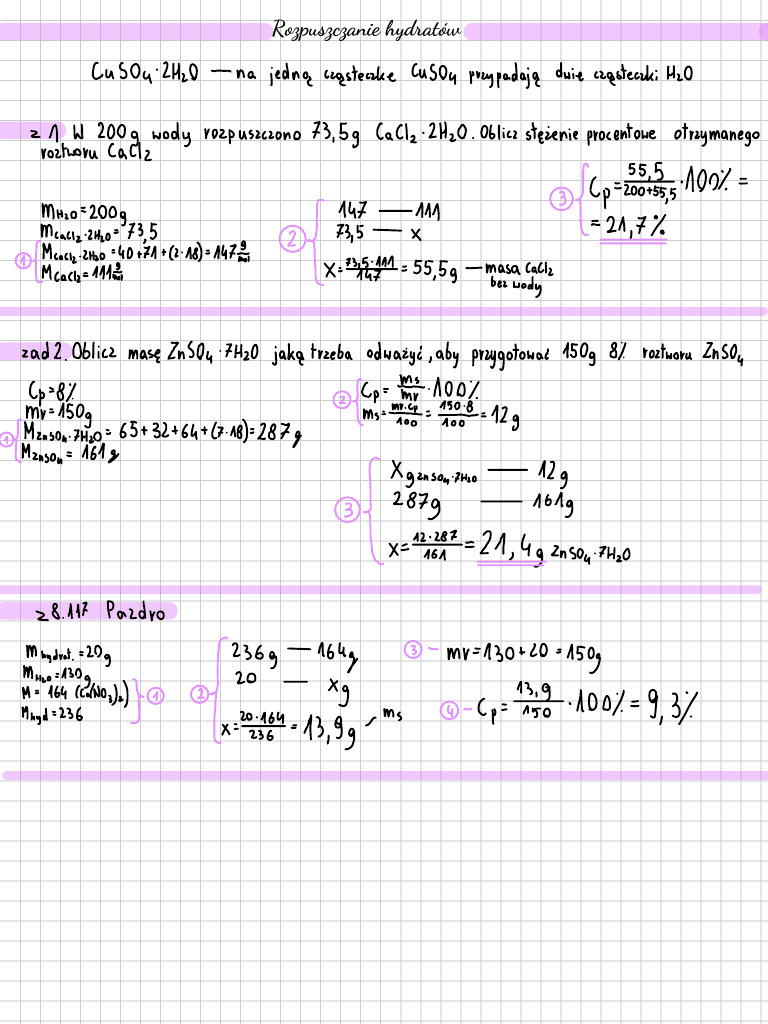 Rozpuszczanie hydratów
CuSO₄·2H₂O — na jedną cząsteczkę CuSO₄ przypadają dwie cząsteczki H₂O
z 1 W 200g wody rozpuszczono 73,5g CaCl₂·2H₂O. Oblicz stężenie procentowe otrzymanego
roztworu CaCl₂
mH₂O = 200g
mCaCl₂·2H₂O = 73,5
① MCaCl₂·2H₂O = 40+71+(2·18) = 147 g/mol
MCaCl₂ = 111 g/mol
② 147 — 111
73,5 — x
x = 73,5·111/147 = 55,5g — masa CaCl₂
bez wody
③ Cp = 55,5/200+55,5 · 100% =
= 21,7%
zad 2. Oblicz masę ZnSO₄·7H₂O jaką trzeba odważyć, aby przygotować 150g 8% roztworu ZnSO₄
Cp = 8%
mr = 150g
① MZnSO₄·7H₂O = 65+32+64+(7·18) = 287g
MZnSO₄ = 161g
② Cp = ms/mr · 100%
ms = mr·cp/100 = 150·8/100 = 12g
③ xg ZnSO₄·7H₂O — 12g
287g — 161g
x = 12·287/161 = 21,4g ZnSO₄·7H₂O
z 8.117 Pazdro
m hydrat. = 20g
mH₂O = 130g
M = 164 (Ca(NO₃)₂) ①
Mhyd = 236
② 236g — 164g
20 — xg
x = 20·164/236 = 13,9g – ms
③ – mr = 130+20 = 150g
④ – Cp = 13,9/150 · 100% = 9,3%